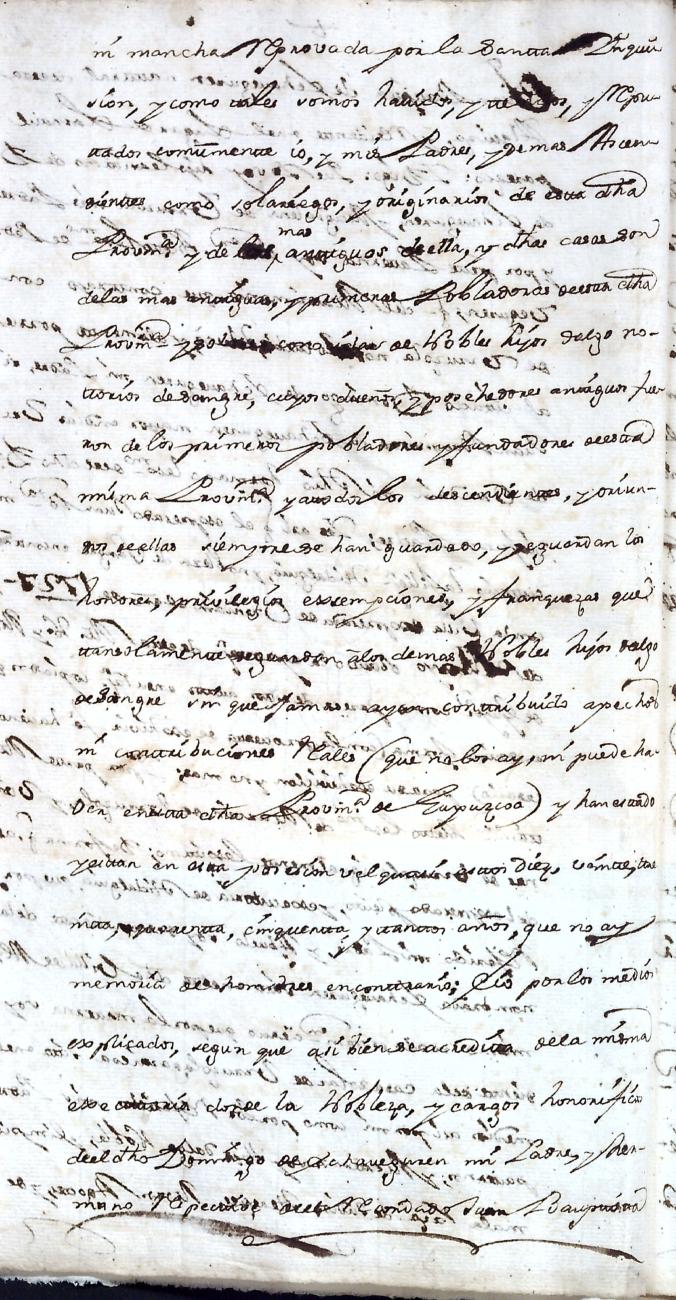 ni mancha Reprovada por la Santta Ynqui
sion, y como tales somos havidos, y tenidos, y Repu
ttados comunmente io, y mis Padres, y demas Ascen
dientes como solariegos, y originarios de esta dha
Provinᵃ y de los mas antiguos de ella, y dhas casas son
de las mas antiguas, y primeras Pobladoras de esta dha
Provinᵃ y solares conocidos de Nobles hijos dalgo no-
ttorios de sangre, cuyos dueños, y posehedores antiguos fue
ron de los primeros pobladores y fundadores de esta
misma Provinᵃ y a todos los descendientes, y oriun-
dos de ellas siempre se han guardado, y se guardan los
1757-
honores, privilegios exsempciones, y franquezas que
ttan solamente se guardan a los demas Nobles hijos dalgo
de sangre sin que jamas ayan contribuido a pechos
ni contribuciones Rales (que no los ay, ni puede ha
ver en esta dha Provinᵃ de Guipuzcoa) y han estado
y estan en esta posesion vel quasi estos diez, veinte, tre
inta, quarenta, cinquenta y tantos años, que no ay
memoria de hombres en contrario; Lo por los medios
explicados, segun que assi bien se acredita de la misma
de la Nobleza, y cargos honorificos
de el dho Domingo de Echaveguren mi Padre, y Her-
mano Respectibe de el Recordado Juan Bauptista